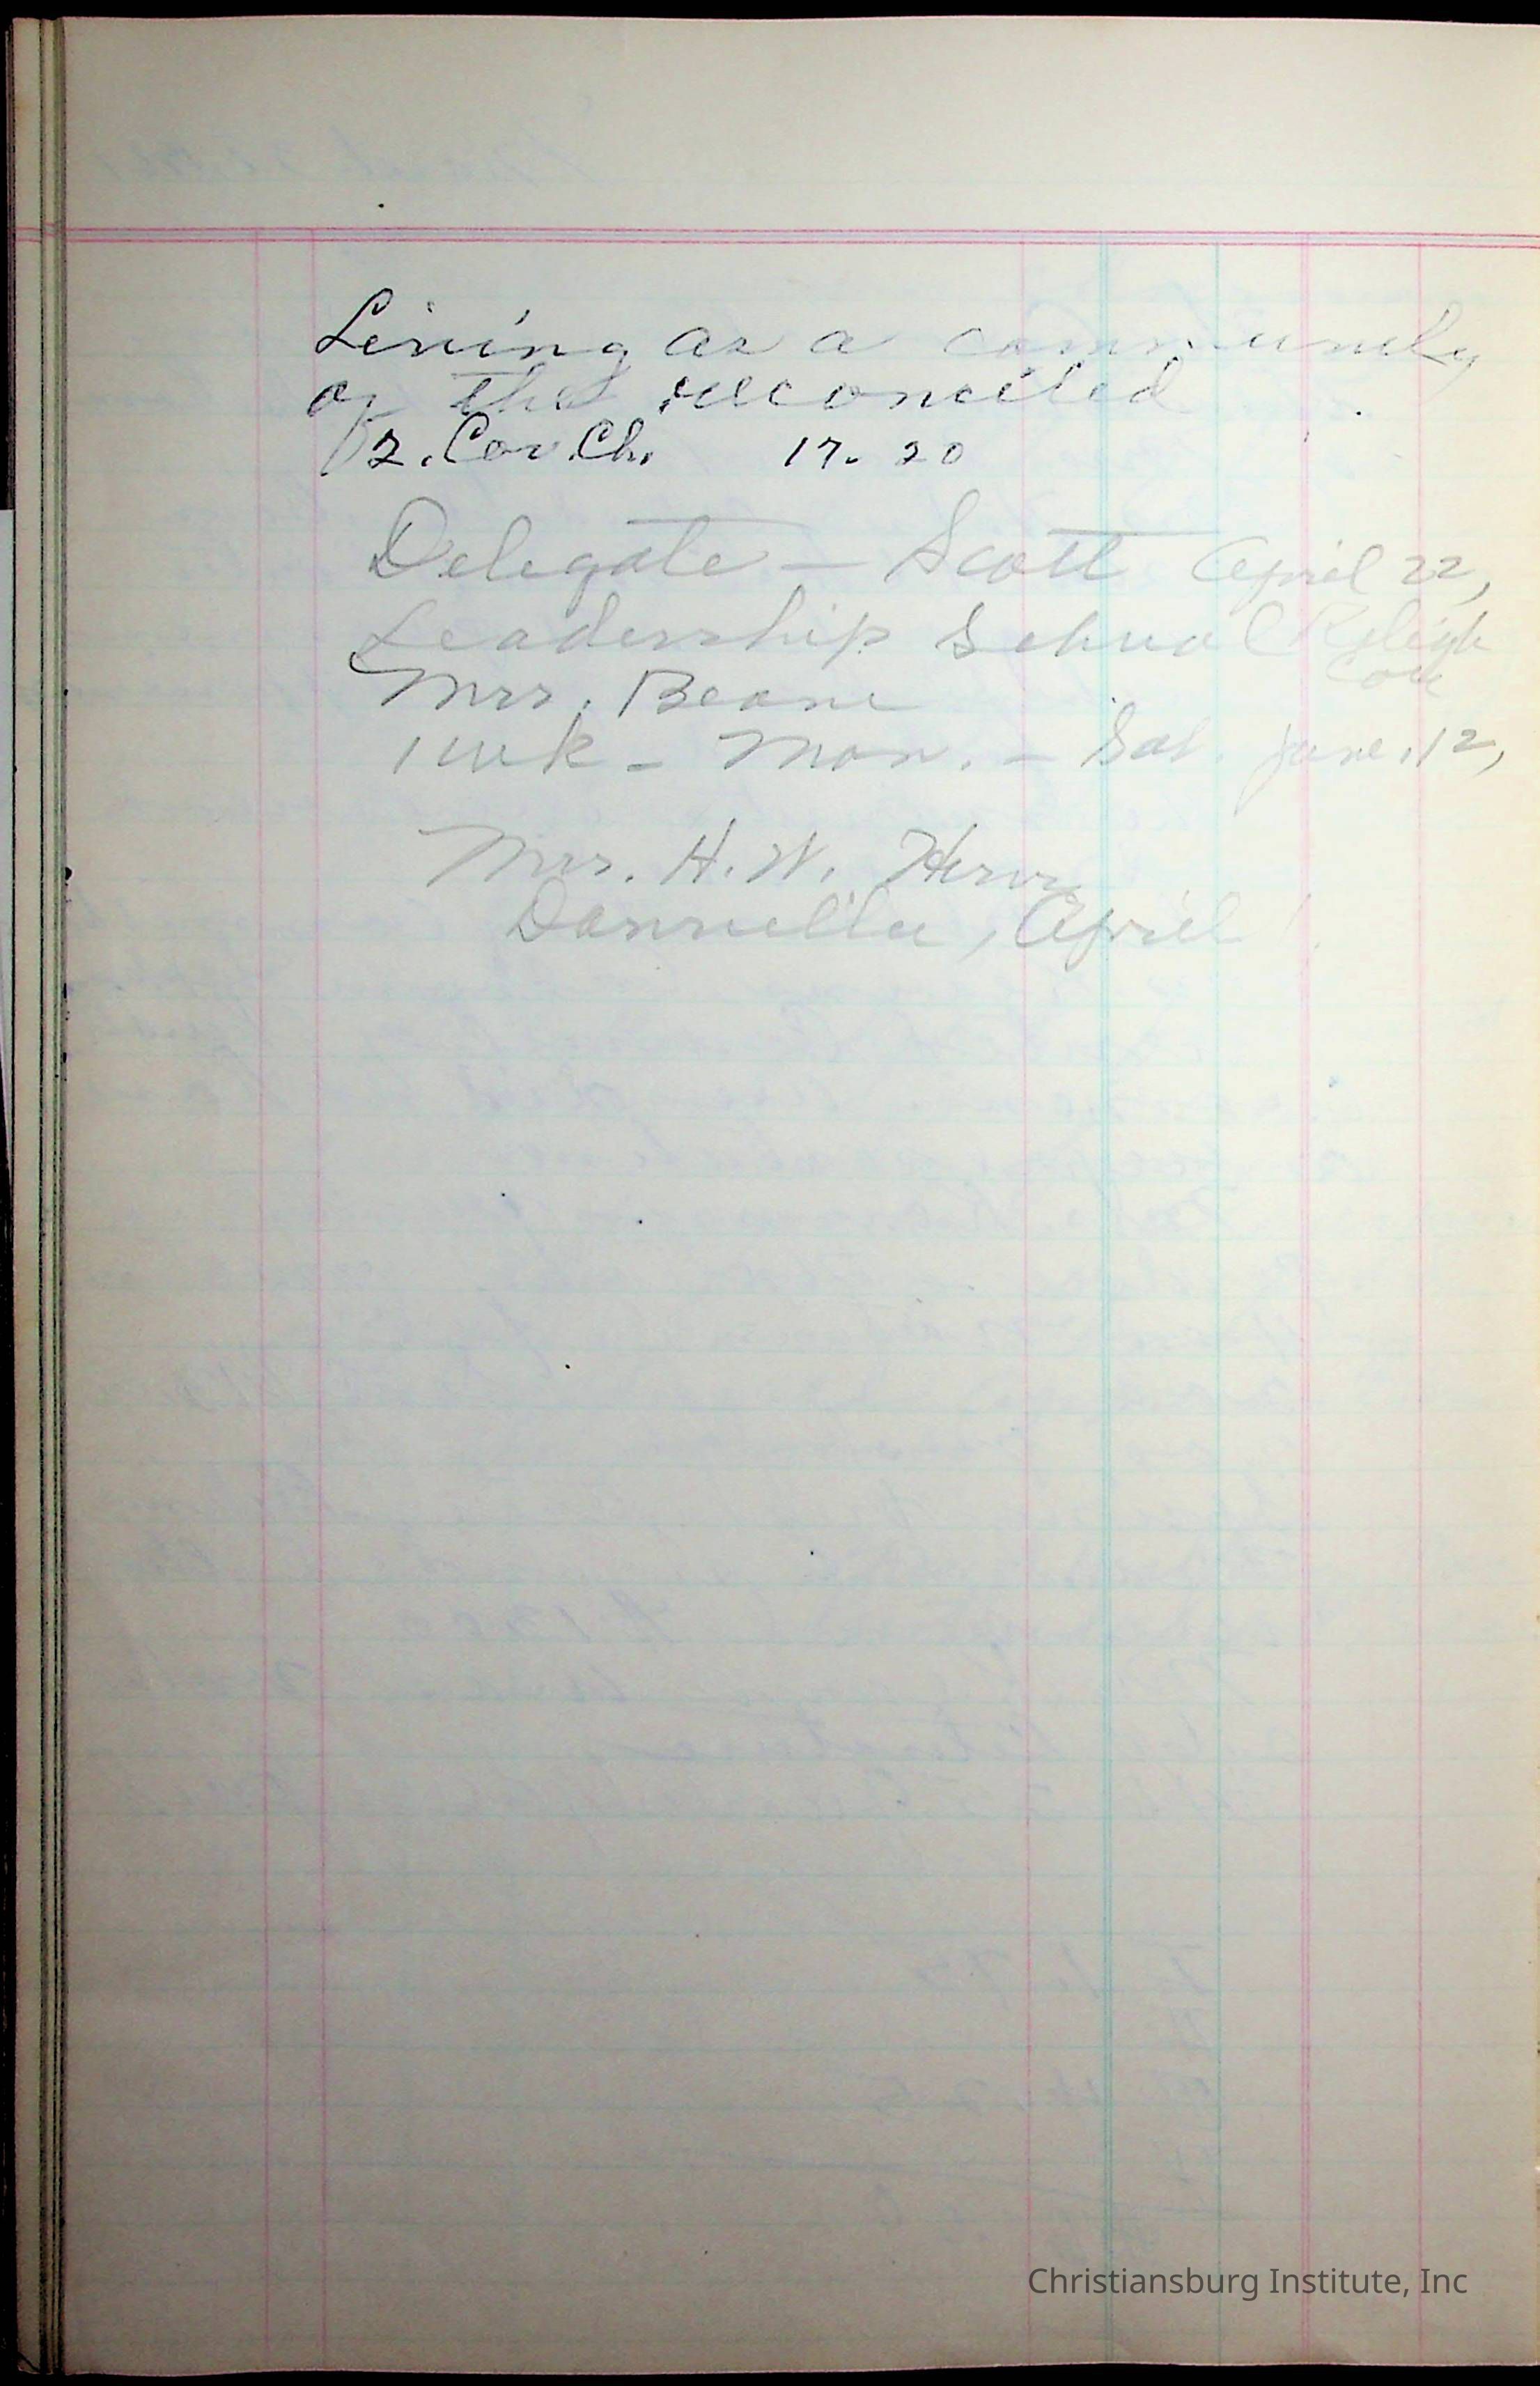 Living as a community
of the reconciled
2. Cor. Ch. 17. 20
Delegate — Scott April 22,
Leadership School
Mrs. Beane
1 wk - Mon. - Sat. June. 12,
Mrs. H. W.
April
Christiansburg Institute, Inc